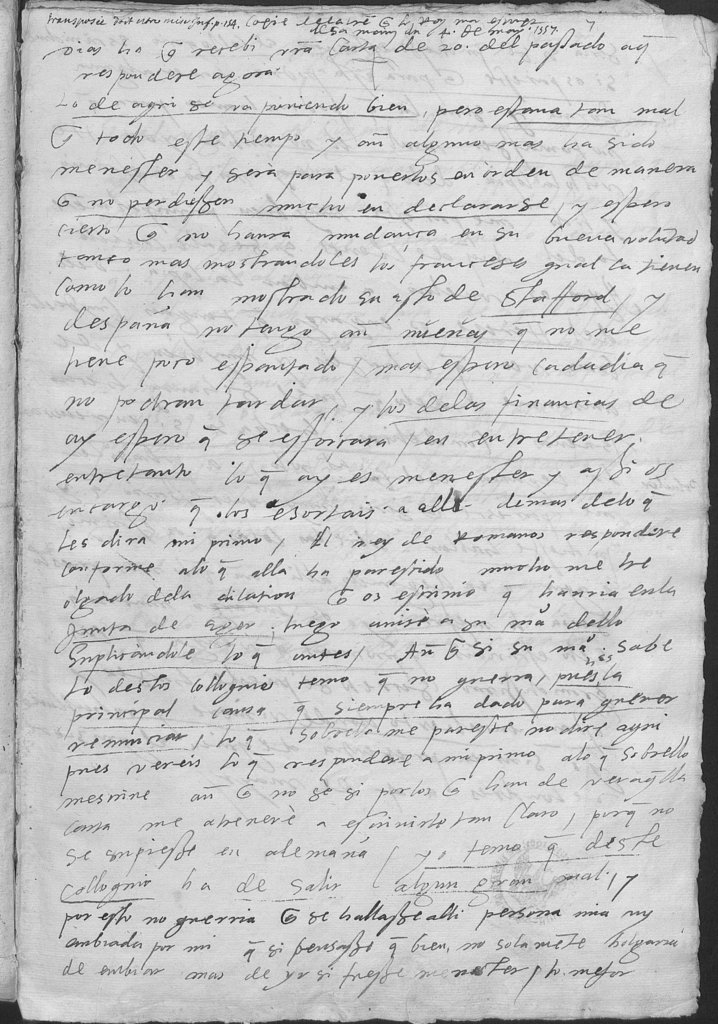 Dias ha q̃ recebi vrã carta de 20. del passado aq̃
respondere agora
Lo de aqui se va poniendo bien, pero estava tan mal
q̃ todo este tiempo y aũ alguno mas ha sido
menester y sera para ponerlos en orden de manera
q̃ no perdiessen mucho en declararse, y espero
cierto q̃ no havra mudança en su buena volũtad
tanto mas mostrandoles los franceses qual la tienen
como lo han mostrado en esto de Stafford, y
despaña no tengo aũ nuevas q̃ no me
tiene poco espantado, mas espero cada dia q̃
no podran tardar, y los delas financias de
ay espero q̃ se esforçara, en entretener
entretanto lo q̃ ay es menester y assi os
encargo q̃ los esortais a alla demas delo q̃
les dira mi primo, El rey de Romanos respondere
conforme alo q̃ alla ha parescido mucho me he
olgado dela dilation q̃ os escrivio q̃ havria enla
junta de, luego avise a su mã dello
suplicandole lo q̃ antes, Aũ q̃ si su mã sabe
lo destos colloquios temo q̃ no querra, pues la
principal causa q̃ siempre ha dado para querer
renunciar, lo q̃ sobrello me pareste no dire aqui
pues vereis lo q̃ respondere a mi primo alo q̃ sobrello
mescrive aũ q̃ no se si por los q̃ han de ver aq̃lla
carta me atrevere a escrivirlo tan claro, porq̃ no
se supiesse en alemaña, yo temo q̃ deste
Colloquio ha de salir algun gran mal, y
por esto no querria q̃ se hallasse alli persona mia ny
embiada por mi q̃ si pensasse q̃ bien, no solamẽte holgaria
de embiar mas de yr si fuesse menester, lo mejor